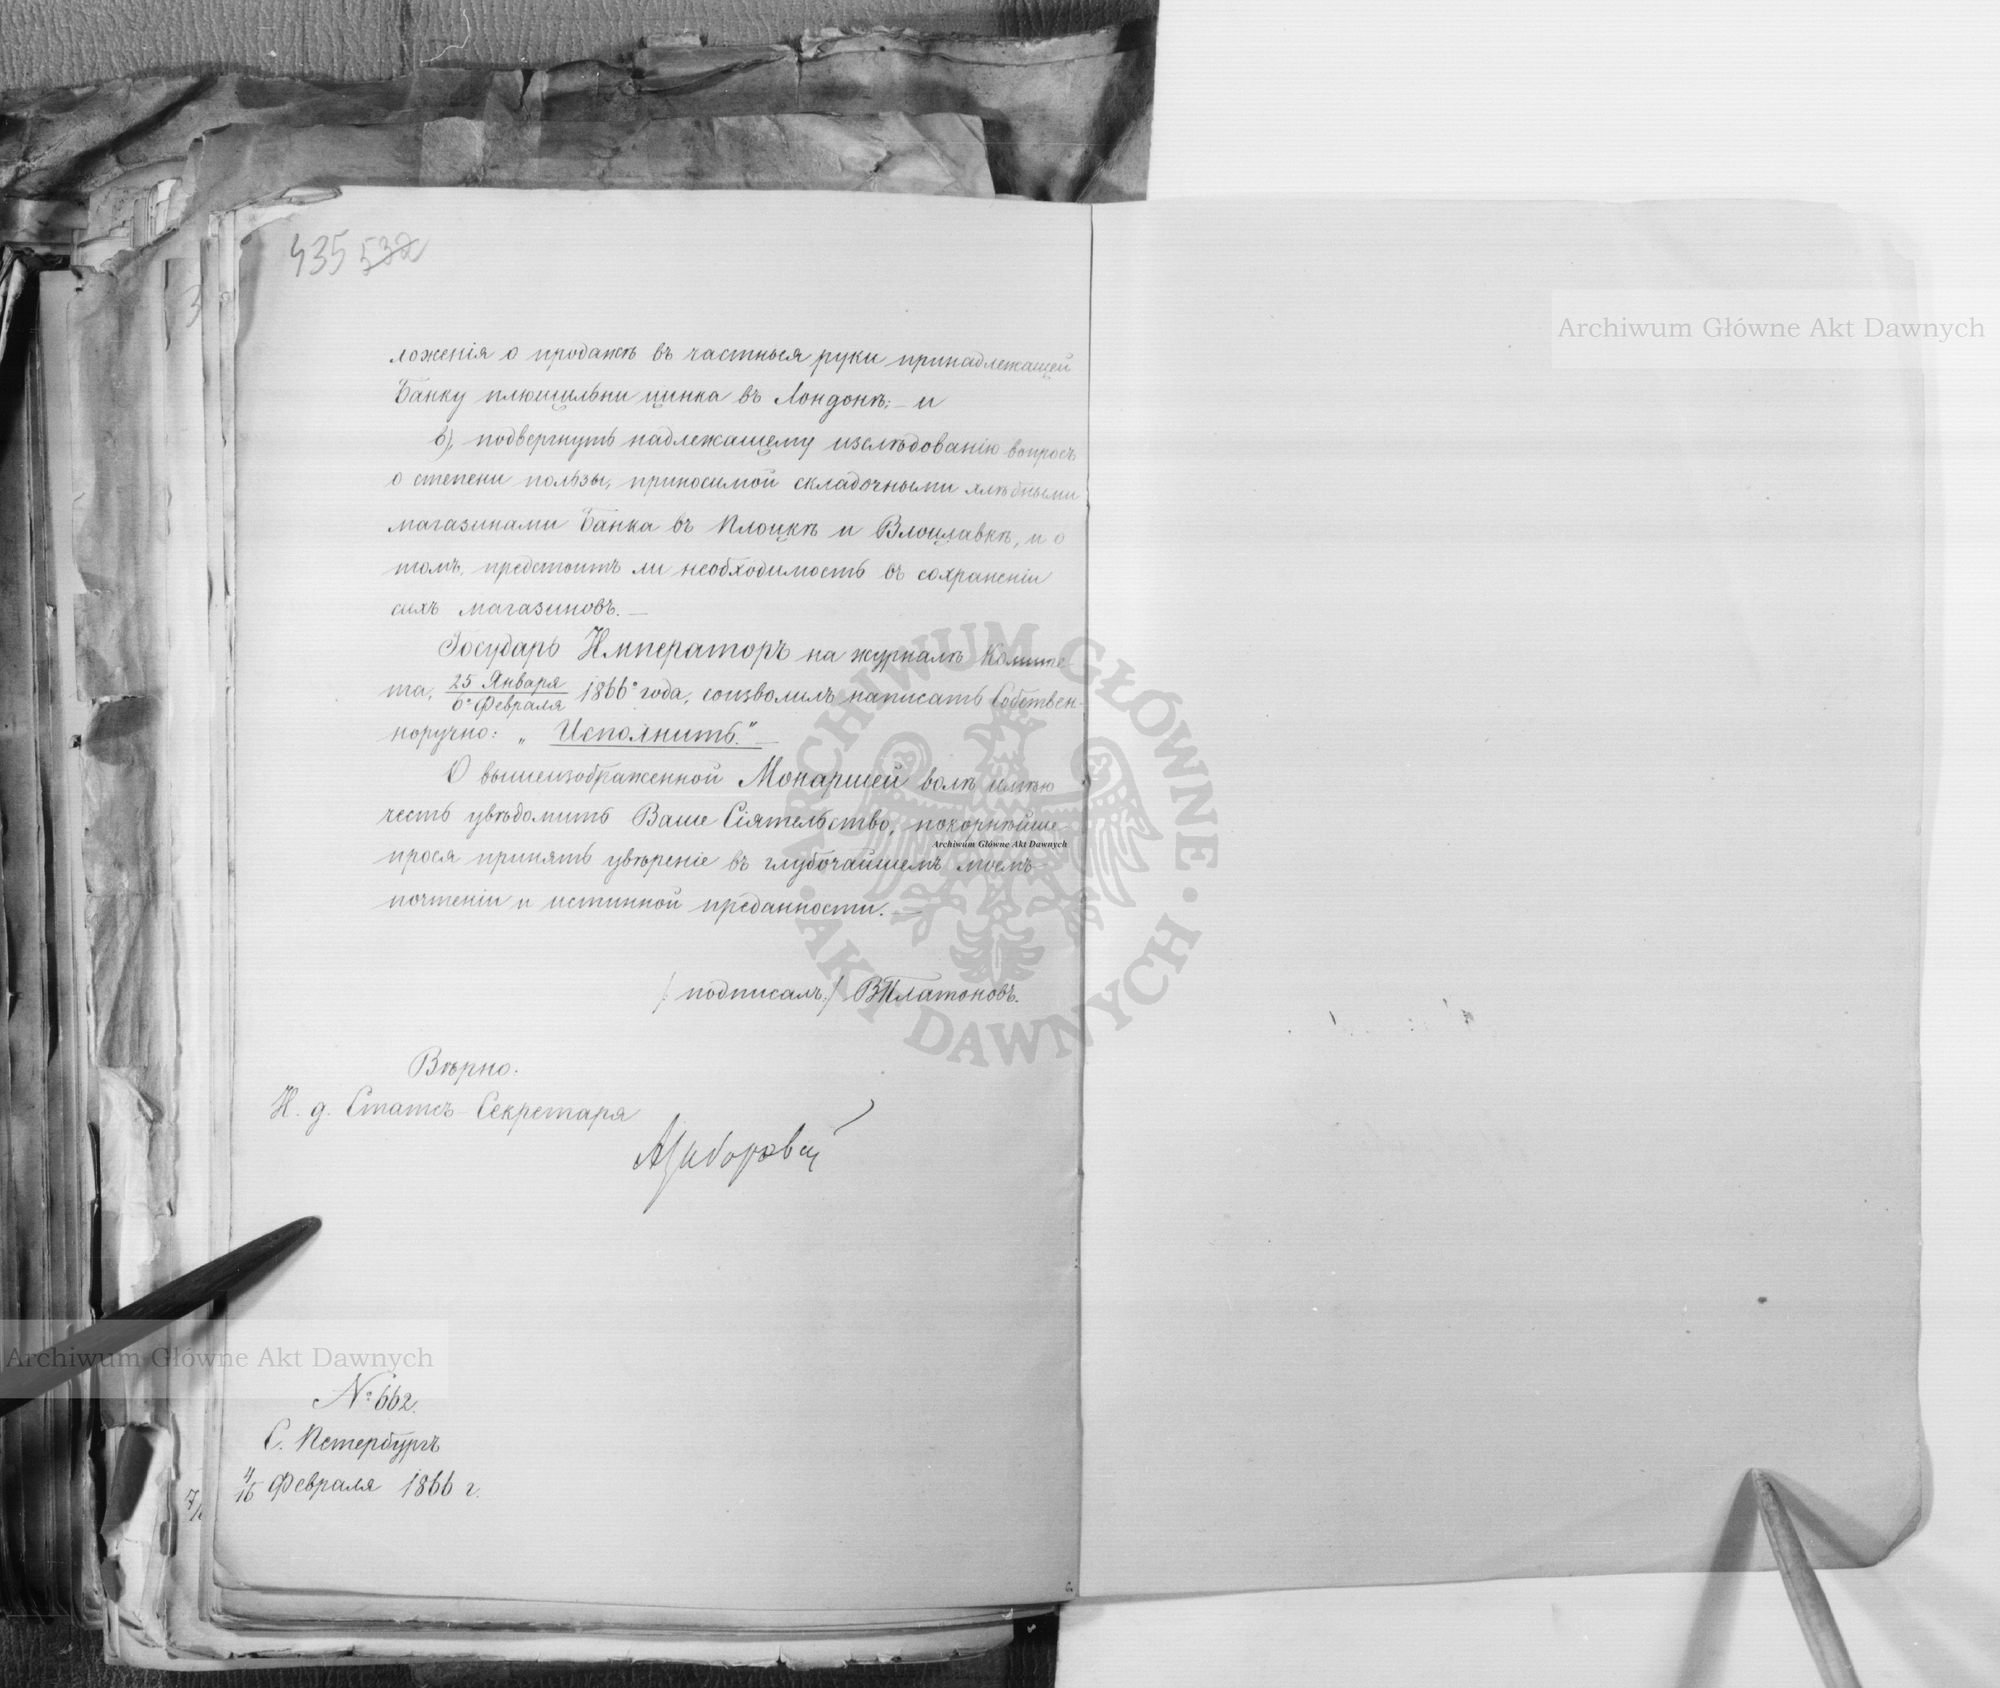 435 532
ложенія о продажѣ въ частныя руки принадлежащей
Банку плющильни цинка въ Лондонѣ; – и
в), подвергнуть надлежащему изслѣдованію вопросъ
о степени пользы, приносимой складочными хлѣбными
магазинами Банка въ Плоцкѣ и Влоцлавкѣ, и о
томъ, предстоитъ ли необходимость въ сохраненіи
сихъ магазиновъ. –
Государь Императоръ на журналѣ Комите-
та, 25 Января / 6 Февраля 1866 года, соизволилъ написать Собствен-
норучно: „Исполнить." –
О вышеизображенной Монаршей волѣ имѣю
честь увѣдомить Ваше Сіятельство, покорнѣйше
прося принять увѣреніе въ глубочайшемъ моемъ
почтеніи и истинной преданности. –
/: подписалъ :/ В Платоновъ.
Вѣрно:
И. д. Статсъ-Секретаря
№ 662.
С. Петербургъ
4/16 Февраля 1866 г.
Archiwum Główne Akt Dawnych
Archiwum Główne Akt Dawnych
Archiwum Główne Akt Dawnych
ARCHIWUM GŁÓWNE · AKT DAWNYCH ·